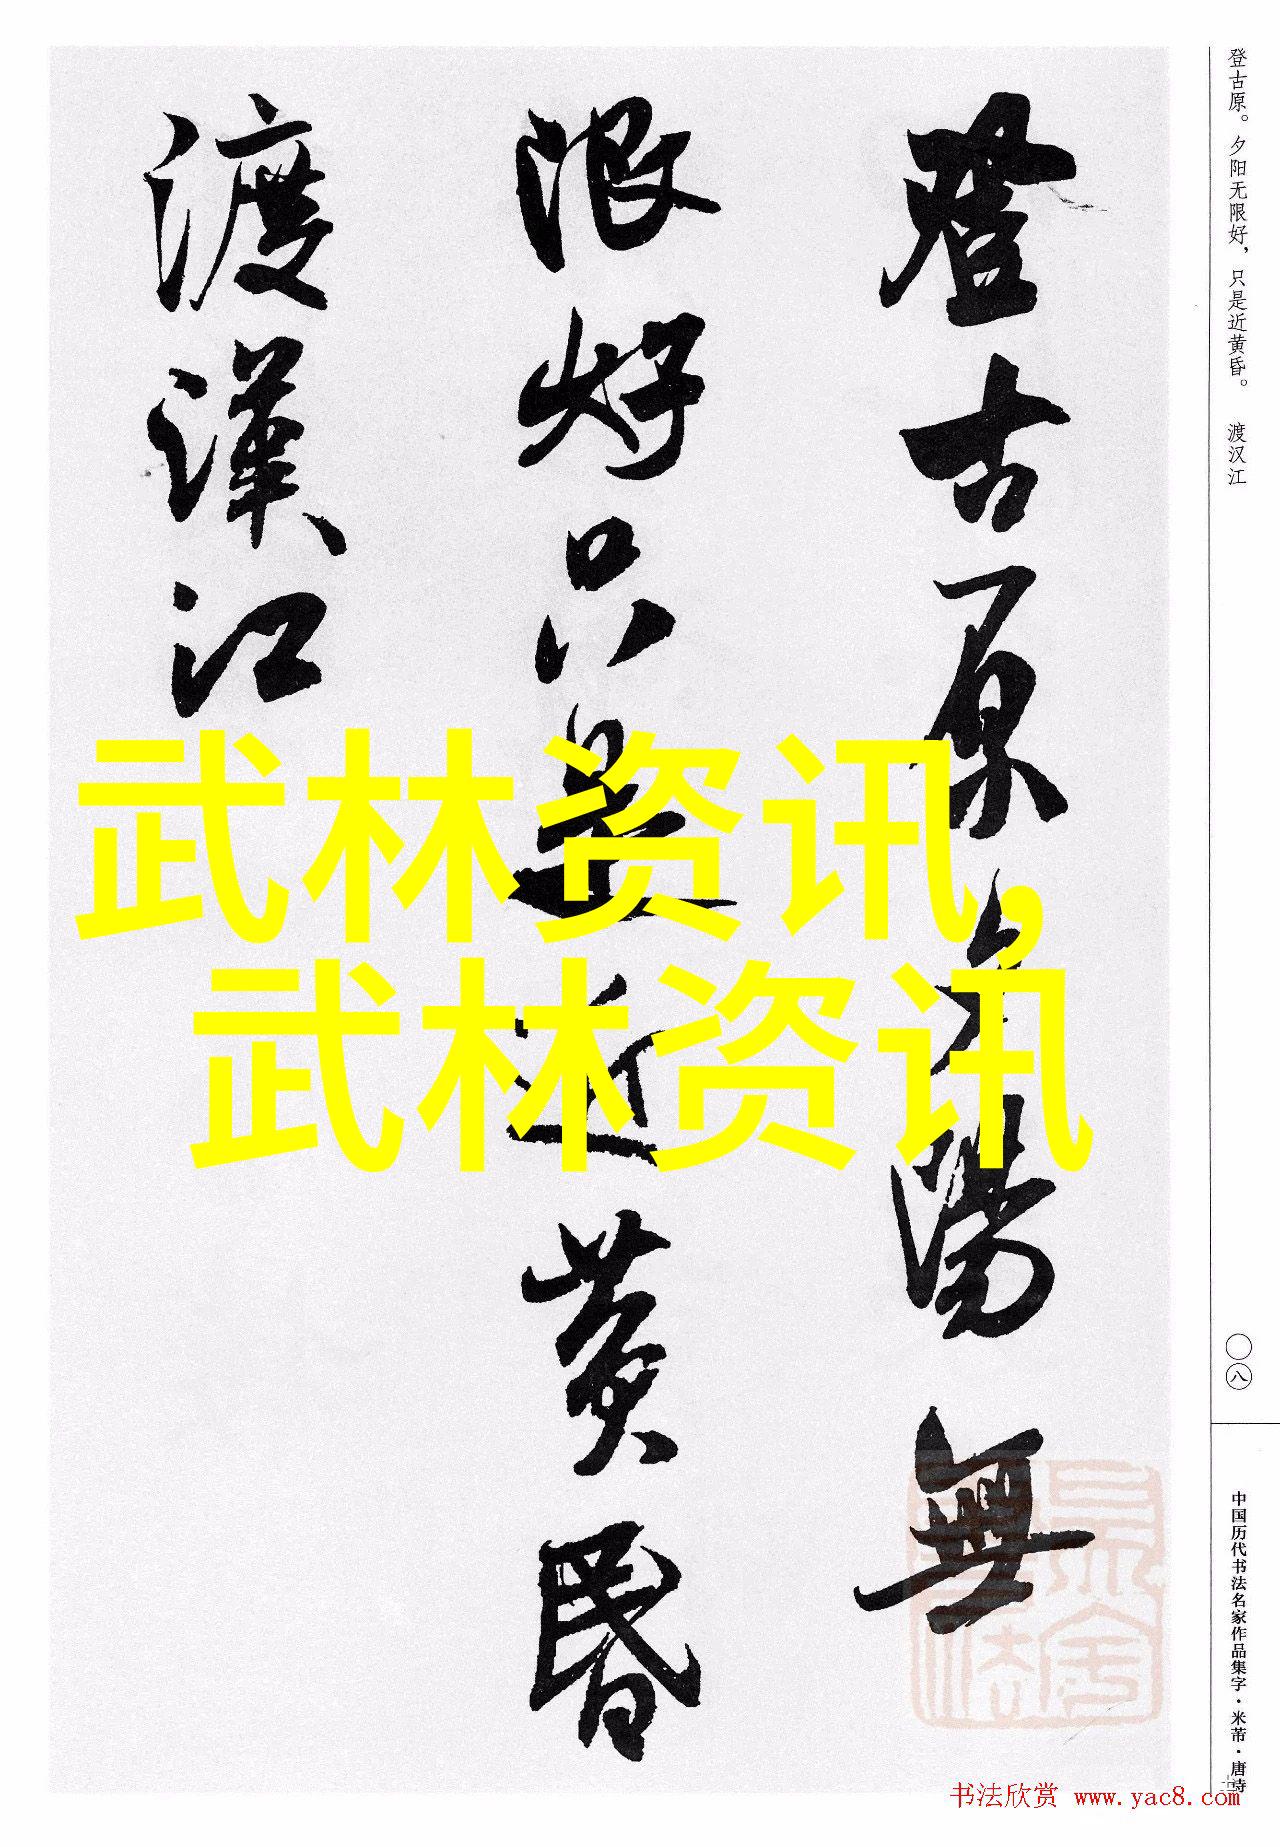 登古原夕陽無
限好只是近黄昏
渡漢江
登古原。夕阳无限好，只是近黄昏。 渡汉江
〇八
中国历代书法名家作品集字·米芾·唐诗
武林资讯,
武林资讯
书法欣赏 www.yac8.com